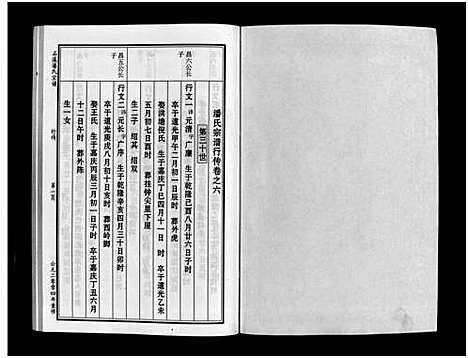 潘氏宗谱行传卷之六
第三十世
昌六公长
行文一 讳 元清 字 广廉 生于乾隆
八月廿六日子时
卒于道光甲午二月初一日亥时 葬外虎
娶洪塘倪氏 生于嘉庆丁巳四月十一日 时 卒于道光乙未
五月初七日酉时 葬挂钟尖里下屋
生二子 绍其 绍双
昌五公长
行文二 讳 元长 字 广序 生于乾隆辛亥四月三十日卯时
卒于道光庚戌八月初十日亥时 葬西岭脚
娶王氏 生于嘉庆丙辰三月初一日子时 卒于嘉庆丁丑六月
十二日午时 葬外陈
生一女
潘氏宗谱
行传
第一页
公元二零零四年重修